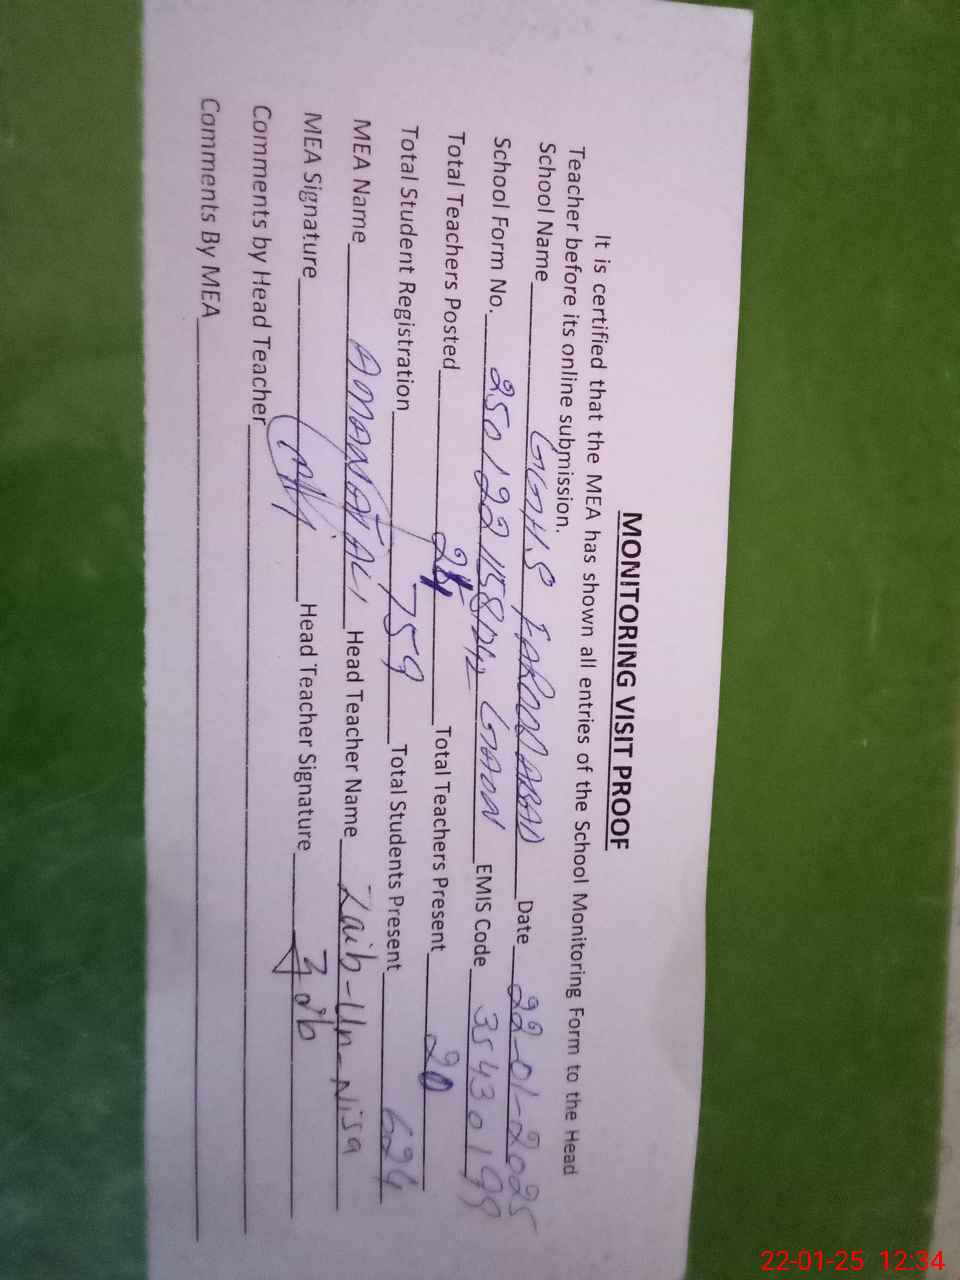 MONITORING VISIT PROOF
It is certified that the MEA has shown all entries of the School Monitoring Form to the Head
Teacher before its online submission.
School Name GGHS FAROOQABAD Date 22-01-2025
School Form No. EMIS Code 35430199
Total Teachers Posted Total Teachers Present 20
Total Student Registration 759 Total Students Present 624
MEA Name AMANAT ALI Head Teacher Name Zaib-Un-Nisa
MEA Signature Head Teacher Signature
Comments by Head Teacher
Comments By MEA
22-01-25 12:34